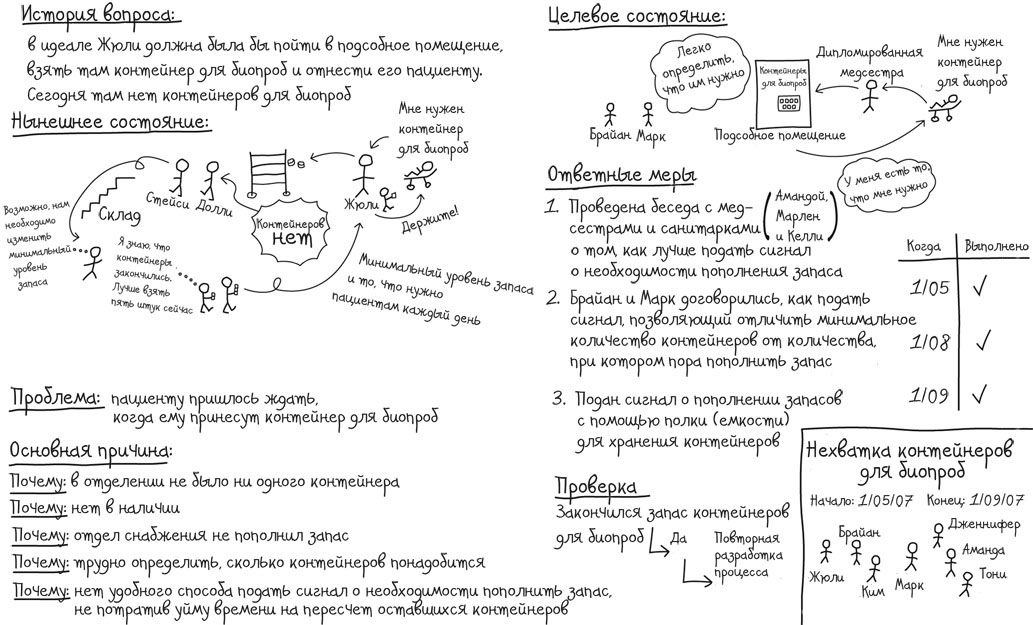 История вопроса:
в идеале Жюли должна была бы пойти в подсобное помещение,
взять там контейнер для биопроб и отнести его пациенту.
Сегодня там нет контейнеров для биопроб
Нынешнее состояние:
Мне нужен
контейнер
для биопроб
Стейси
Долли
Жюли
Держите!
Склад
Контейнеров
нет
Возможно, нам
необходимо
изменить
минимальный
уровень
запаса
Я знаю, что
контейнеры
закончились.
Лучше взять
пять штук сейчас
Минимальный уровень запаса
и то, что нужно
пациентам каждый день
Проблема: пациенту пришлось ждать,
когда ему принесут контейнер для биопроб
Основная причина:
Почему: в отделении не было ни одного контейнера
Почему: нет в наличии
Почему: отдел снабжения не пополнил запас
Почему: трудно определить, сколько контейнеров понадобится
Почему: нет удобного способа подать сигнал о необходимости пополнить запас,
не потратив уйму времени на пересчет оставшихся контейнеров
Целевое состояние:
Легко
определить,
что им нужно
Контейнеры
для биопроб
Дипломированная
медсестра
Мне нужен
контейнер
для биопроб
Брайан Марк
Подсобное помещение
У меня есть то,
что мне нужно
Ответные меры
1. Проведена беседа с мед-
сестрами и санитарками
о том, как лучше подать сигнал
о необходимости пополнения запаса
(Амандой,
Марлен
и Келли)
2. Брайан и Марк договорились, как подать
сигнал, позволяющий отличить минимальное
количество контейнеров от количества,
при котором пора пополнить запас
3. Подан сигнал о пополнении запасов
с помощью полки (емкости)
для хранения контейнеров
Когда Выполнено
1/05 ✓
1/08 ✓
1/09 ✓
Проверка
Закончился запас контейнеров
для биопроб
Да
Повторная
разработка
процесса
Нехватка контейнеров
для биопроб
Начало: 1/05/07 Конец: 1/09/07
Жюли
Брайан
Ким
Марк
Дженнифер
Аманда
Тони